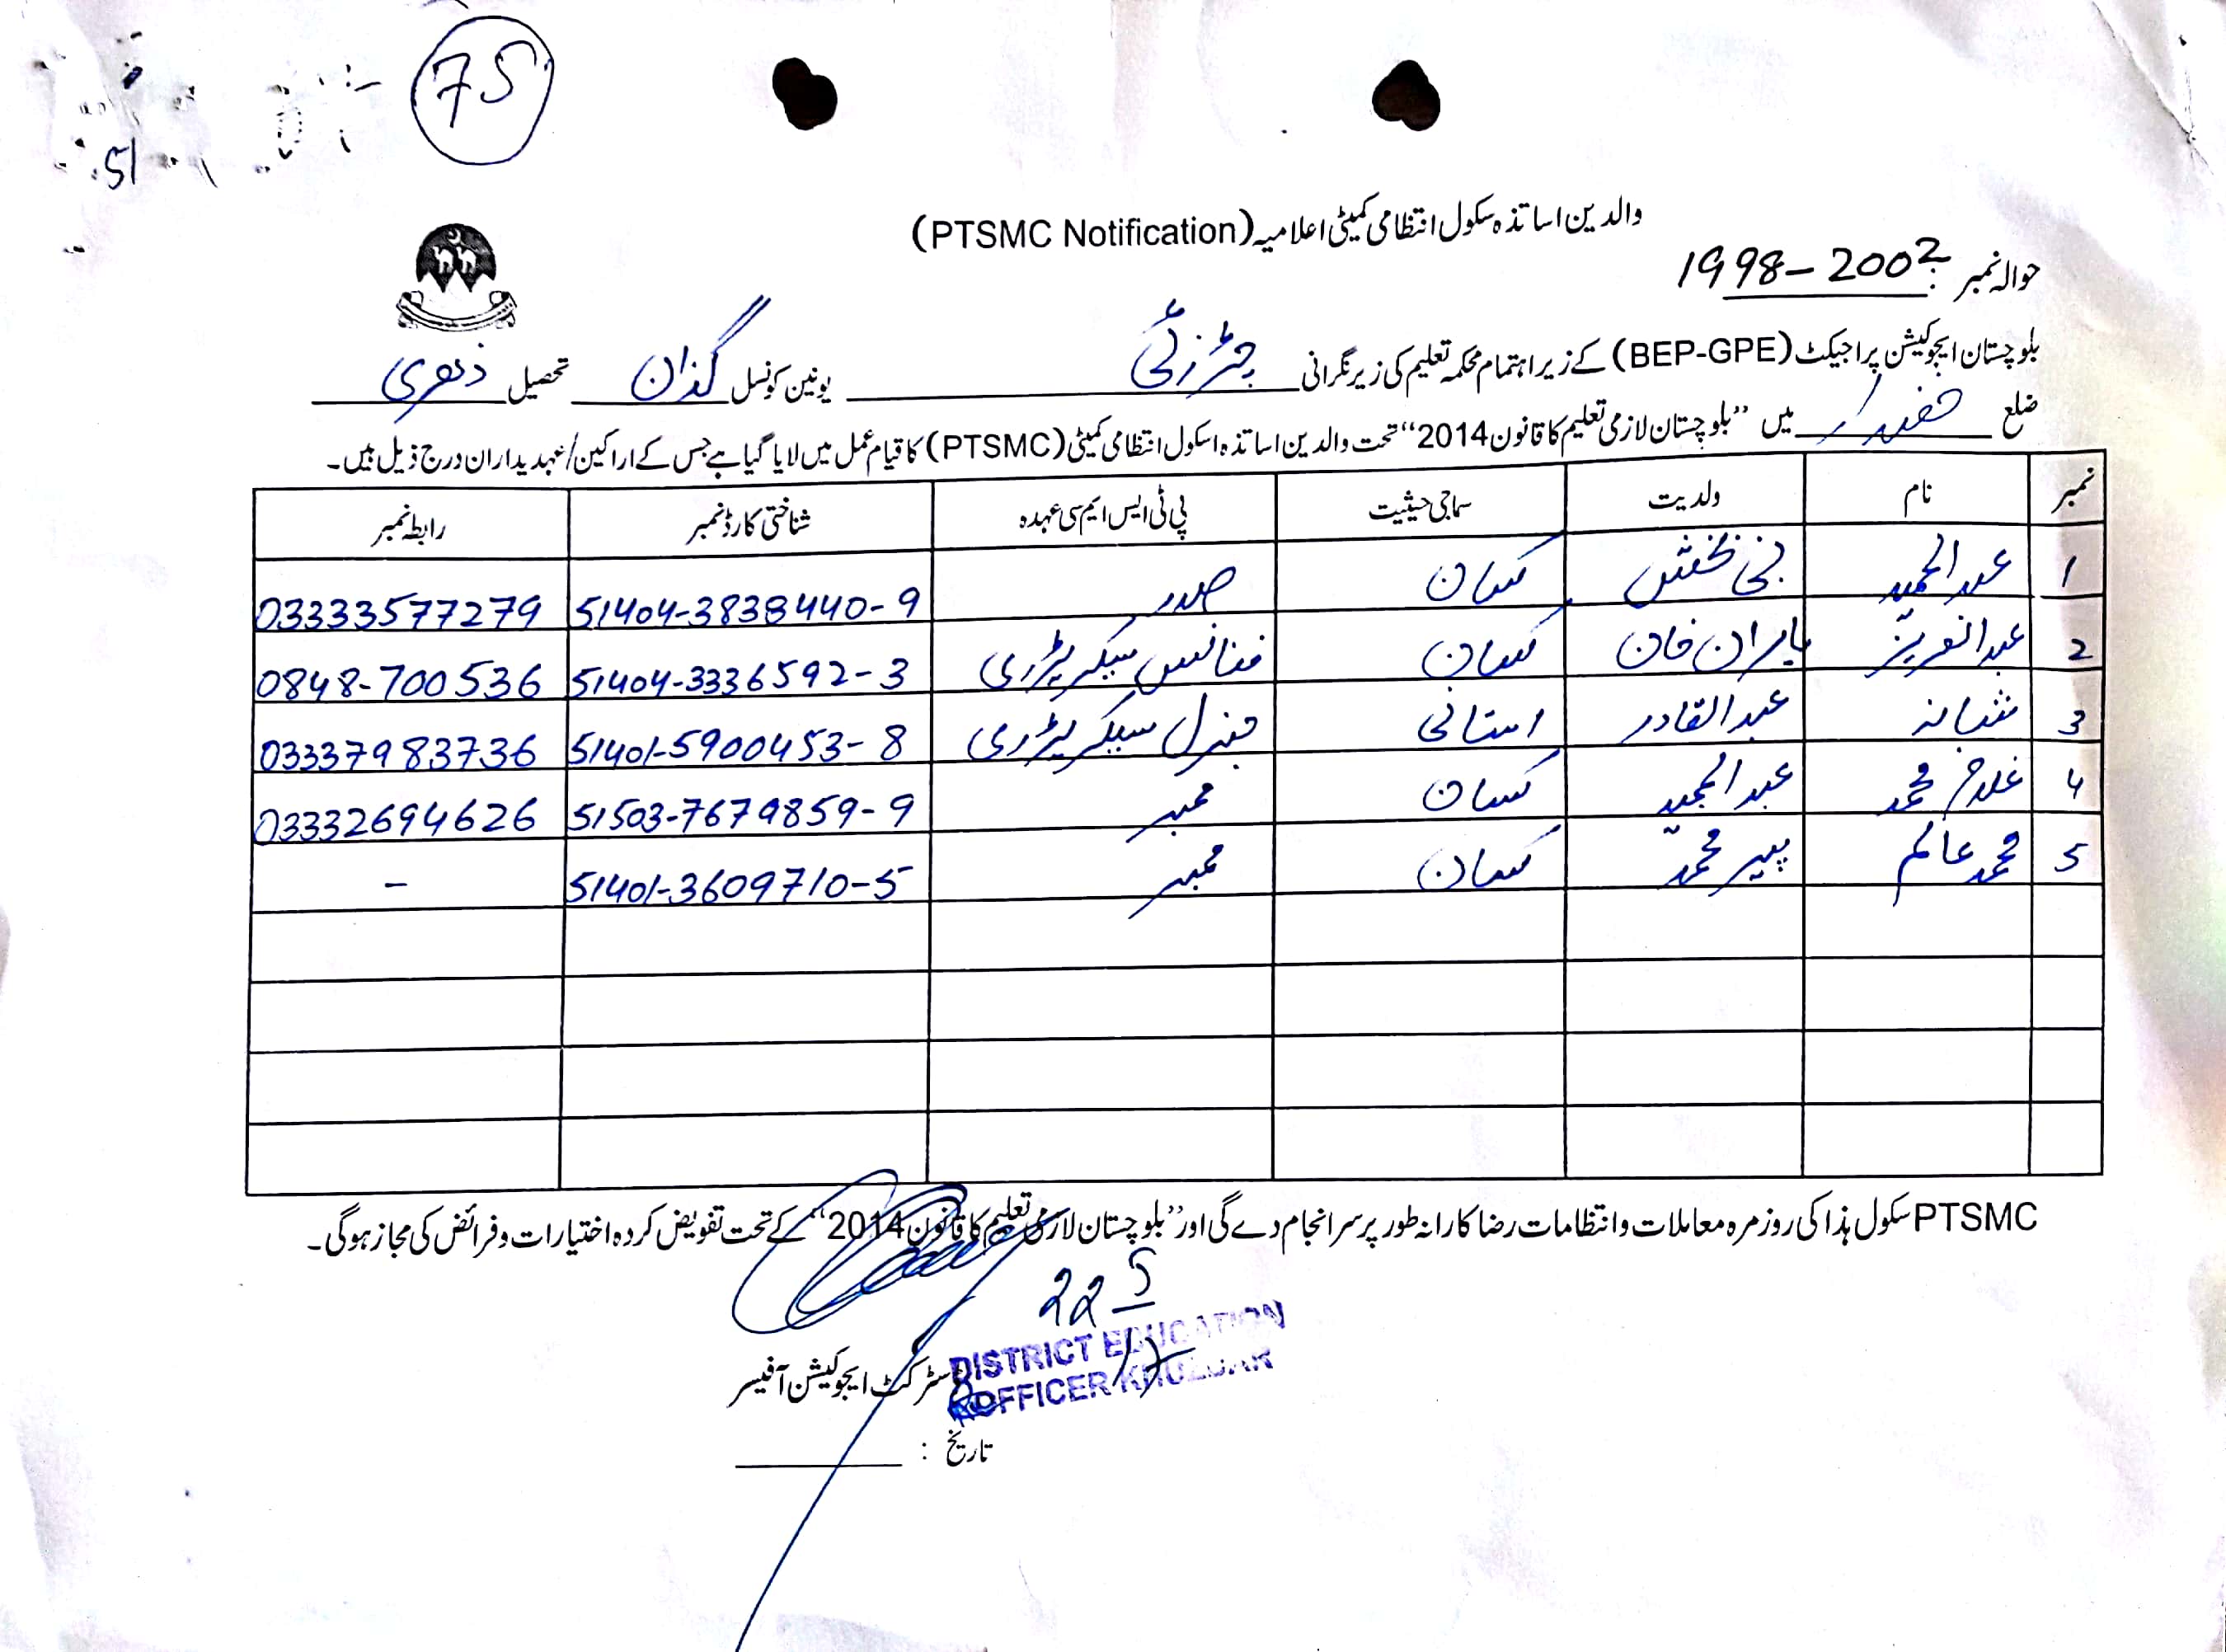 75
والدین اساتذہ سکول انتظامی کمیٹی اعلامیہ (PTSMC Notification)
حوالہ نمبر 1998-2002
بلوچستان ایجوکیشن پراجیکٹ (BEP-GPE) کے زیر اہتمام محکمہ تعلیم کی زیر نگرانی چٹرزئی یونین کونسل گذان تحصیل زہری
ضلع خضدار میں "بلوچستان لازمی تعلیم کا قانون 2014" تحت والدین اساتذہ اسکول انتظامی کمیٹی (PTSMC) کا قیام عمل میں لایا گیا ہے جس کے اراکین/عہدیداران درج ذیل ہیں۔
نمبر نام ولدیت سماجی حیثیت پی ٹی ایس ایم سی عہدہ شناختی کارڈ نمبر رابطہ نمبر
1 عبدالحمید نبی بخش کسان صدر 51404-3838440-9 03333577279
2 عبدالعزیز یاران خان کسان فنانس سیکریٹری 51404-3336592-3 0848-700536
3 شبانہ عبدالقادر استانی جنرل سیکریٹری 51401-5900453-8 03337983736
4 غلام محمد عبدالمجید کسان ممبر 51503-7679859-9 03332694626
5 محمد عالم پیر محمد کسان ممبر 51401-3609710-5 -
PTSMC سکول ہذا کی روزمرہ معاملات و انتظامات رضاکارانہ طور پر سرانجام دے گی اور "بلوچستان لازمی تعلیم کا قانون 2014" کے تحت تفویض کردہ اختیارات و فرائض کی مجاز ہوگی۔
22 5
17
DISTRICT EDUCATION
OFFICER KHUZDAR
ڈسٹرکٹ ایجوکیشن آفیسر
تاریخ :